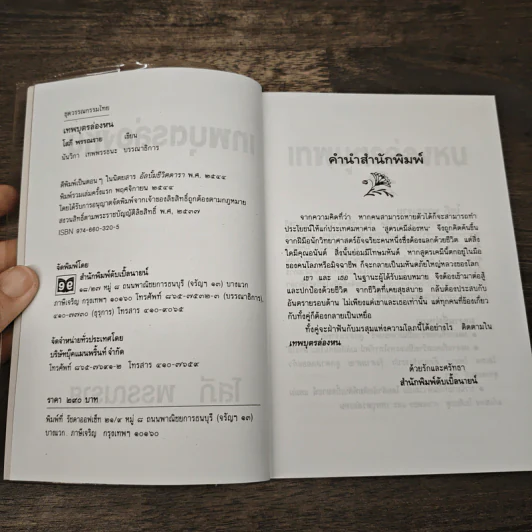 สุดวรรณกรรมไทย
เทพบุตรล่องหน
โสภี พรรณราย เขียน
นันวิภา เทพพรรธนะ บรรณาธิการ
ตีพิมพ์เป็นตอนๆ ในนิตยสาร พ.ศ. ๒๕๔๔
พิมพ์รวมเล่มครั้งแรก พฤศจิกายน ๒๕๔๔
โดยได้รับการอนุญาตจัดพิมพ์จากเจ้าของลิขสิทธิ์ถูกต้องตามกฎหมาย
สงวนลิขสิทธิ์ตามพระราชบัญญัติลิขสิทธิ์ พ.ศ. ๒๕๓๗
ISBN 974-660-320-5
จัดพิมพ์โดย
สำนักพิมพ์ดับเบิ้ลนายน์
๘/๒๗ หมู่ ๘ ถนนพาณิชยการธนบุรี (จรัญฯ ๑๓) บางแวก
ภาษีเจริญ กรุงเทพฯ ๑๐๑๖๐ โทรศัพท์ (บรรณาธิการ),
(ธุรการ) โทรสาร
จัดจำหน่ายทั่วประเทศโดย
บริษัทบุ๊คแมนพริ้นท์ จำกัด
โทรศัพท์ โทรสาร
ราคา ๒๙๐ บาท
พิมพ์ที่ ๒๑/๙ หมู่ ๘ ถนนพาณิชยการธนบุรี (จรัญฯ ๑๓)
บางแวก ภาษีเจริญ กรุงเทพฯ ๑๐๑๖๐
คำนำสำนักพิมพ์
จากความคิดที่ว่า หากคนสามารถหายตัวได้ก็จะสามารถทำ
ประโยชน์ให้แก่ประเทศมหาศาล 'สูตรเคมีล่องหน' จึงถูกคิดค้นขึ้น
จากฝีมือนักวิทยาศาสตร์อัจฉริยะคนหนึ่งซึ่งต้องแลกด้วยชีวิต แต่สิ่ง
ใดมีคุณอนันต์ สิ่งนั้นย่อมมีโทษมหันต์ หากสูตรเคมีนี้ตกอยู่ในมือ
ของคนโลภหรือมิจฉาชีพ ก็จะกลายเป็นมหันตภัยใหญ่หลวงของโลก
เขา และ เธอ ในฐานะผู้ได้รับมอบหมาย จึงต้องเข้ามาต่อสู้
และปกป้องด้วยชีวิต จากชีวิตที่เคยสุขสบาย กลับต้องประสบกับ
อันตรายรอบด้าน ไม่เพียงแต่เขาและเธอเท่านั้น แต่ทุกคนที่ข้องเกี่ยว
กับทั้งคู่ก็ต้องกลายเป็นเหยื่อ
ทั้งคู่จะฝ่าฟันกับมรสุมแห่งความโลภนี้ได้อย่างไร ติดตามใน
เทพบุตรล่องหน
ด้วยรักและศรัทธา
สำนักพิมพ์ดับเบิ้ลนายน์